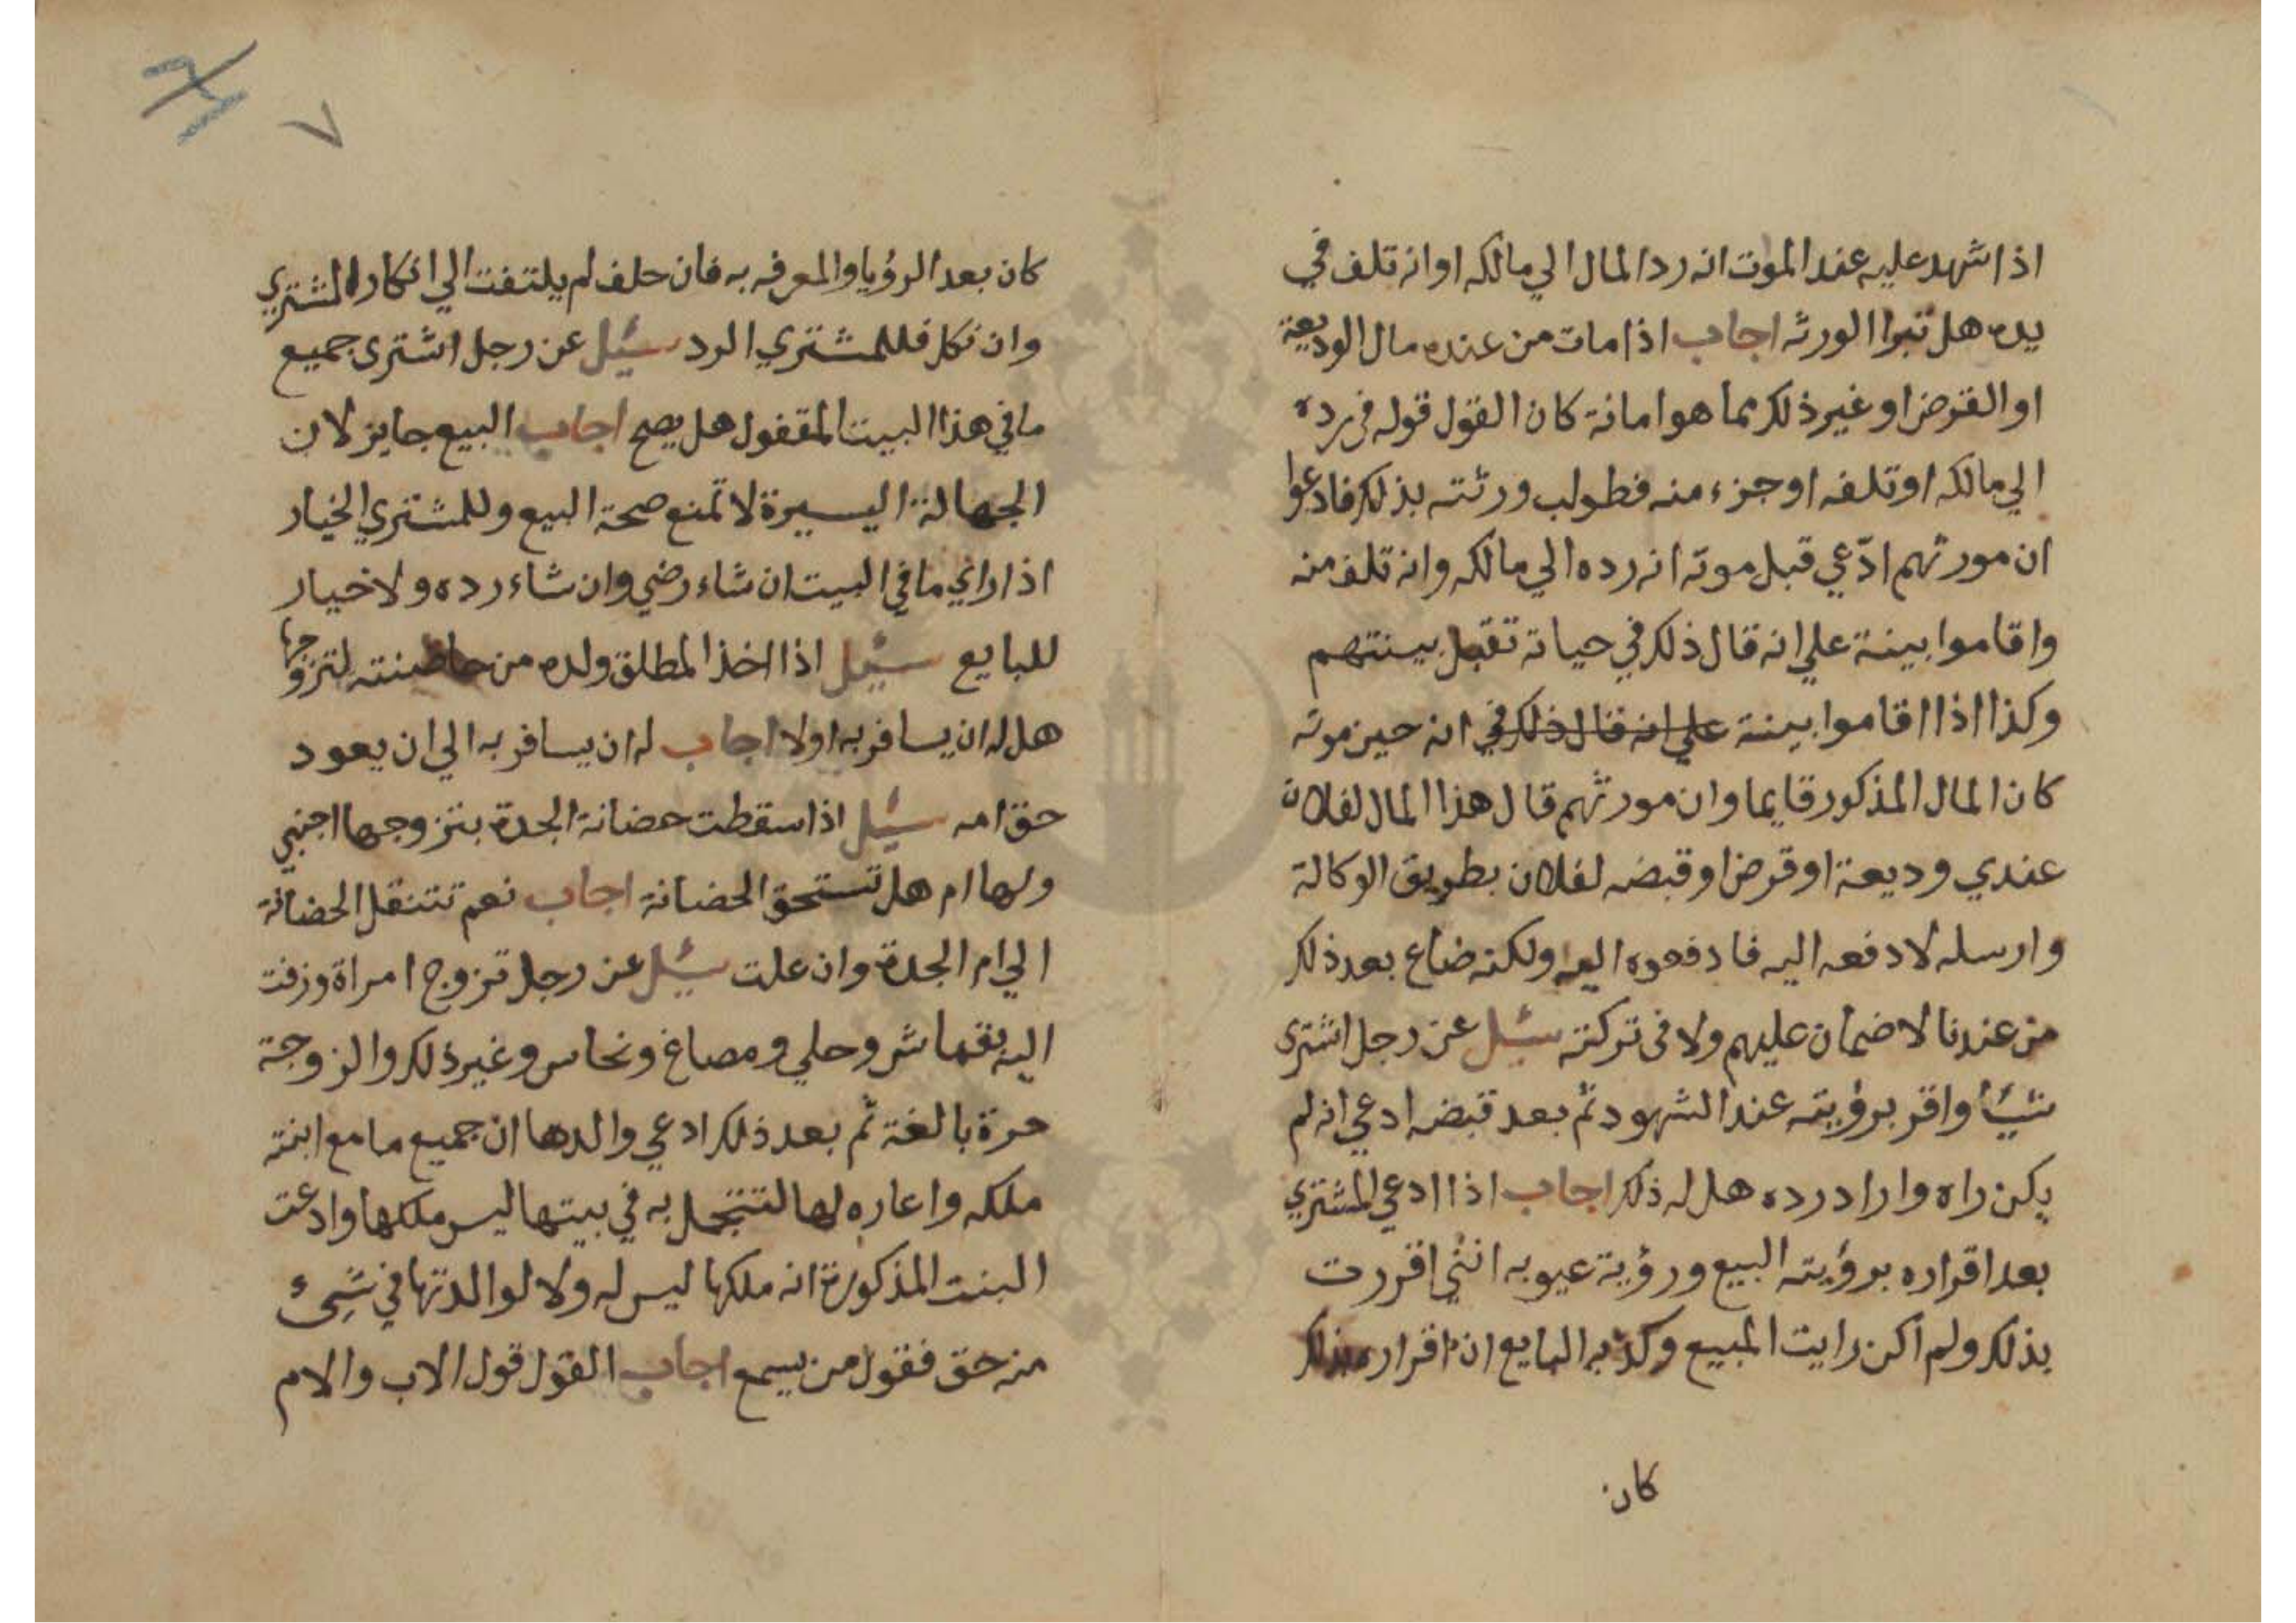 اذا شهد عليه عند الموت انه رد المال الي مالكه او انه تلف في
يده هل تبرا الورثه اجاب اذا مات من عنده مال الوديعة
او القرض او غير ذلك مما هو امانة كان القول قوله في رده
الي مالكه او تلفه او جزء منه فطولب ورثته بذلك فادعوا
ان مورثهم ادّعي قبل موته انه رده الي مالكه وانه تلف منه
واقاموا بينة علي انه قال ذلك في حياته تقبل بينتهم
وكذا اذا اقاموا بينة علي انه قال ذلك في انه حين موته
كان المال المذكور قايما وان مورثهم قال هذا المال لفلان
عندي وديعة او قرض او قبضه لفلان بطريق الوكالة
وارسله لادفعه اليه فادفعوه اليه ولكنه ضاع بعد ذلك
من عندنا لا ضمان عليهم ولا في تركته سئيل عن رجل اشترى
شيئا واقر برؤيته عند الشهود ثم بعد قبضه ادعي انه لم
يكن راه واراد رده هل له ذلك اجاب اذا ادعي المشتري
بعد اقراره برؤيته البيع ورؤية عيوبه انني اقررت
بذلك ولم اكن رايت المبيع وكذبه البايع ان اقراره بذلك
كان
٧
كان بعد الرؤيا والمعرفه به فان حلف لم يلتفت الي انكار المشتري
وان نكل فللمشتري الرد سئيل عن رجل اشترى جميع
ما في هذا البيت المقفول هل يصح اجاب البيع جايز لان
الجهالة اليسيرة لا تمنع صحة البيع وللمشتري الخيار
اذا راي ما في البيت ان شاء رضي وان شاء رده ولا خيار
للبايع سئيل اذا اخذ المطلق ولده من حاضنته لتزوجها
هل له ان يسافر به اولا اجاب له ان يسافر به الي ان يعود
حق امه سئيل اذا سقطت حضانة الجدة بتزوجها اجنبي
ولها ام هل تستحق الحضانة اجاب نعم تنتقل الحضانة
الي ام الجدة وان علت سئيل عن رجل تزوج امراة وزفت
اليه بقماش وحلي ومصاغ ونحاس وغير ذلك والزوجة
حرة بالغة ثم بعد ذلك ادعي والدها ان جميع ما مع ابنته
ملكه واعاره لها لتتجمل به في بيتها ليس ملكها وادعت
البنت المذكورة انه ملكها ليس له ولا لوالدتها في شيء
منه حق فقول من يسمع اجاب القول قول الاب والام